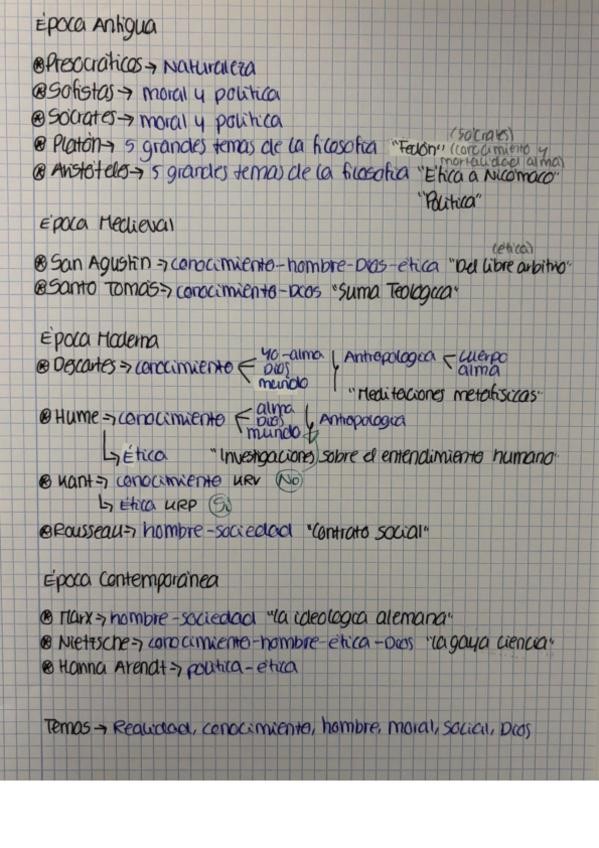 Época Antigua
Presocráticos → Naturaleza
Sofistas → moral y política
Sócrates → moral y política
(Sócrates)
Platón → 5 grandes temas de la filosofía "Fedón" (conocimiento y
mortalidad alma)
Aristóteles → 5 grandes temas de la filosofía "Ética a Nicómaco"
"Política"
Época Medieval
(ética)
San Agustín → conocimiento-hombre-Dios-ética "Del libre arbitrio"
Santo Tomás → conocimiento-Dios "Suma Teológica"
Época Moderna
Descartes → conocimiento yo-alma Dios mundo Antropología cuerpo alma
"Meditaciones metafísicas"
Hume → conocimiento alma Dios mundo Antropología
↳ Ética "Investigaciones sobre el entendimiento humano"
Kant → conocimiento URV No
↳ Ética URP Sí
Rousseau → hombre-sociedad "Contrato social"
Época Contemporánea
Marx → hombre-sociedad "la ideología alemana"
Nietzsche → conocimiento-hombre-ética-Dios "la gaya ciencia"
Hanna Arendt → política-ética
Temas → Realidad, conocimiento, hombre, moral, social, Dios